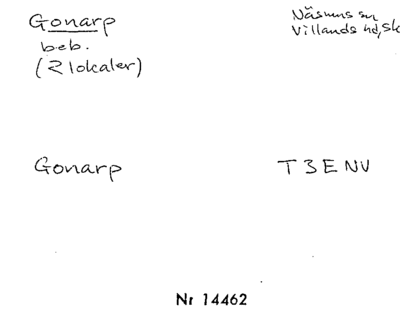 Gonarp
Näsums sn
beb.
Villands hd, Sk
(2 lokaler)
Gonarp
T 3 E NV
Nr 14462